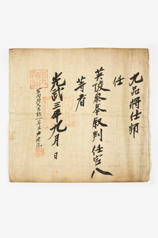 九品將仕郎
任
英陵參奉敍判任官八
等者
光武三年九月 日